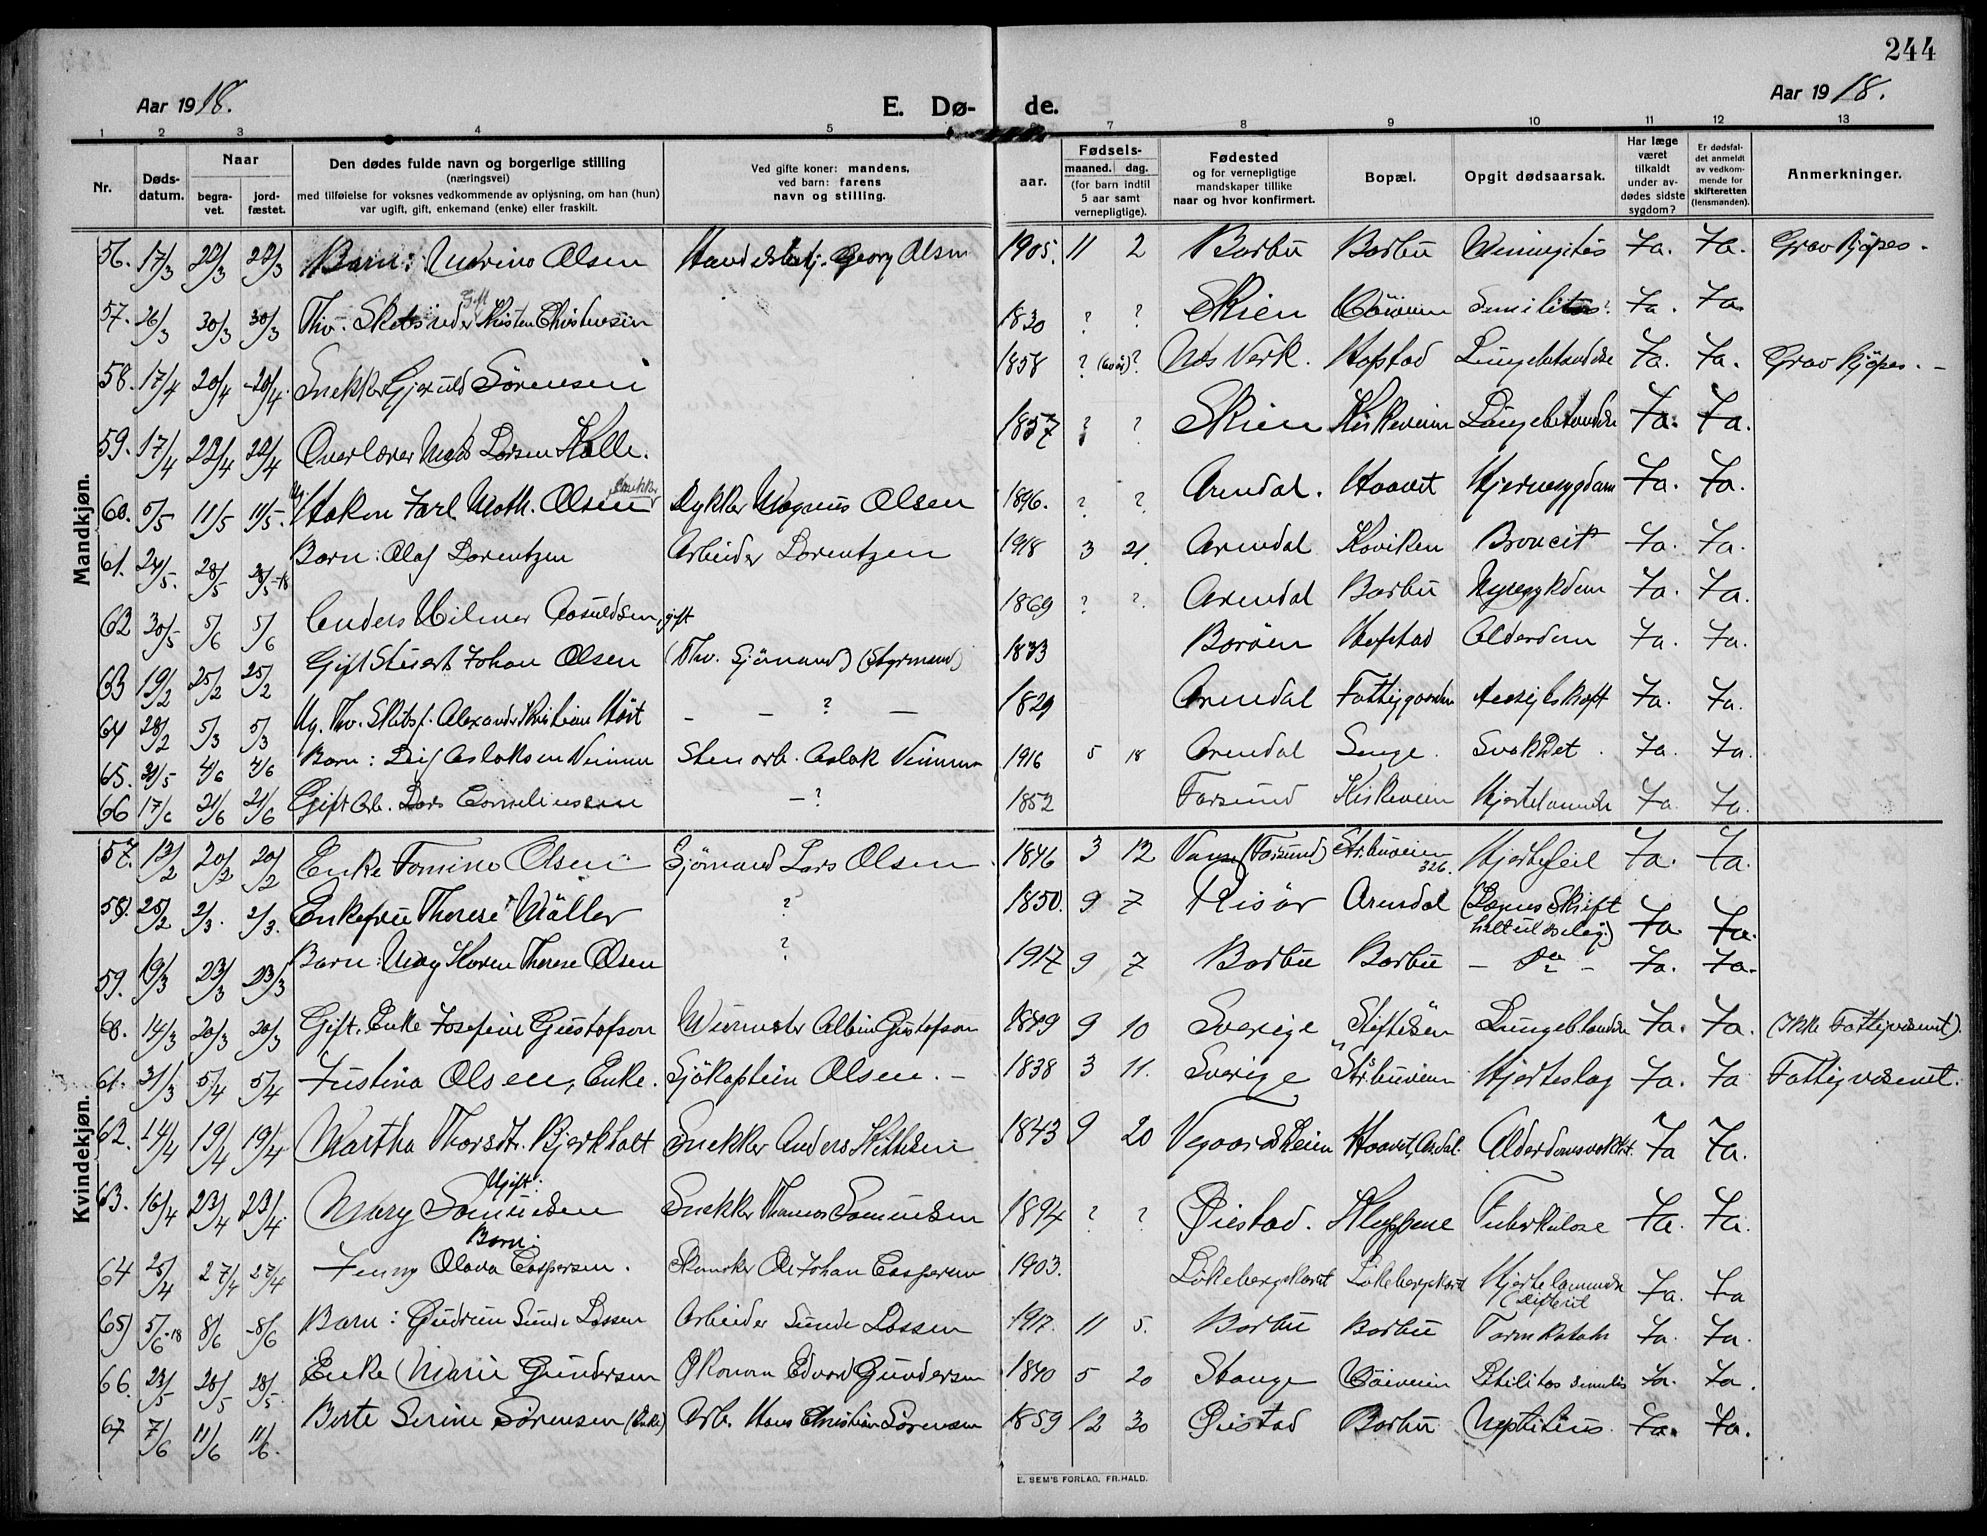 244
Aar 1918.
E. Dø-
de.
Aar 1918.
1 2 3 4 5 7 8 9 10 11 12 13
Nr.
Døds-
datum.
Naar
begra-
vet.
jord-
fæstet.
Den dødes fulde navn og borgerlige stilling
(næringsvei)
med tilføielse for voksnes vedkommende av oplysning, om han (hun)
var ugift, gift, enkemand (enke) eller fraskilt.
Ved gifte koner: mandens,
ved barn: farens
navn og stilling.
aar.
Fødsels-
maaned. dag.
(for barn indtil
5 aar samt
vernepligtige).
Fødested
og for vernepligtige
mandskaper tillike
naar og hvor konfirmert.
Bopæl.
Opgit dødsaarsak.
Har læge
været
tilkaldt
under av-
dødes sidste
sygdom?
Er dødsfal-
det anmeldt
av vedkom-
mende for
skifteretten
(lensmanden).
Anmerkninger.
Mandkjøn.
56. 17/3 22/3 22/3 Barn: Marino Olsen Georg Olsen 1905. 11 2 Barbu Barbu Ja. Ja. Grav kjøpes.
57. 26/3 30/3 30/3 Gift Christensen 1830 ? ? Skien Ja. Ja
58. 17/4 20/4 20/4 Snekker Sørensen 1858 ? ? Næs Verk. Hofstad Lungebetændelse Ja. Ja. Grav kjøpes.
59. 17/4 22/4 22/4 Overlærer Mads Larsen Kolle. 1857 ? ? Skien Kirkeveien Lungebetændelse Ja. Ja.
60. 5/5 11/5 11/5. Ug. Hakon Jarl Math. Olsen snekker Dykker Magnus Olsen 1896. ? ? Arendal. Haavet Hjernesygdom Ja. Ja.
61. 24/5. 28/5 28/5-18 Barn: Olaf Lorentzen Arbeider Lorentzen 1918 3 21. Arendal Koviken Broncit Ja. Ja.
62 30/5 5/6 5/6 Anders Hilmer Aasuldsen, gift 1869 ? ? Arendal Barbu Nyresykdom Ja. Ja.
63 19/2 25/2 25/2 Gift Stuert Johan Olsen (Fhv. Sjømand) (Styrmand) 1833 Borøen Hofstad Alderdom Ja. Ja.
64 28/2 5/3 5/3 Ug. Fhv. Skibsf. Alexander Kristian Høst — — ? — 1829 Arendal Fattiggaarden Ja. Ja.
65. 30/5 4/6 4/6 Barn: Leif Aslaksen Vimme Stenarb. Aslak Vimme 1916 5 18 Arendal Songe. Svakhet. Ja. Ja.
66 17/6 21/6 21/6 Gift Arb. Lars Corneliussen —? 1852 Farsund Kirkeveien Hjertelammelse Ja. Ja.
Kvindekjøn.
57. 12/2 20/2 20/2 Enke Tomine Olsen Sjömand Lars Olsen 1846 3 12 Vanse (Farsund) Strbuveien 326. Hjertefeil Ja. Ja.
58. 25/2 2/3. 2/3. Enkefru Therese Möller ? 1850. 9 7 Risör Arendal (Lægens Skrift helt ulæselig.) Ja. Ja.
59. 19/3 23/3 23/3 Barn: May Karen Therese Olsen ? 1917 9 7 Barbu Barbu — Do — Ja. Ja.
60. 14/3 20/3 20/3 Gift. Enke Josefine Gustafson Albin Gustafson 1849 9 10 Sverige Lungebetændelse Ja. Ja. (Ikke Fattigvæsenet).
61. 31/3 5/4 5/4 Justina Olsen, Enke. Sjökaptein Olsen. — 1838 3 11. Sverige Strbuveien Hjerteslag Ja. Ja Fattigvæsenet.
62. 14/4 19/4 19/4 Martha Thorsdtr. Bjerkholt Snekker Anders Kittilsen 1843 9 20 Vegaarsheien Haavet, Ardal. Alderdomssvakhet. Ja Ja.
63. 16/4 23/4 23/4 Mary Samuelsen Ugift. Snekker Thomas Samuelsen 1894 ? ? Øiestad. Kleppene Tuberkulose Ja. Ja.
64 25/4 27/4 27/4 Barn: Jenny Olava Caspersen. Ole Johan Caspersen 1903. Lökebergskaret Lökebergskaret Hjertelammelse (difterit Ja. Ja
65) 5/6-18 8/6 8/6 Barn: Gudrun Sunde Lassen Arbeider Sunde Lassen 1917. 11 5. Barbu Barbu Tarmkatarh Ja. Ja.
66. 23/5 28/5 28/5. Enke Marie Gundersen Økonom Edvard Gundersen 1840 5 20 Stange Ja. Ja.
67 7/6 11/6 11/6. Berte Serine Sørensen (Enke) Arb. Hans Christian Sørensen 1859 12 30 Øiestad Barbu Ja. Ja.
E. SEM'S FORLAG, FR.HALD.